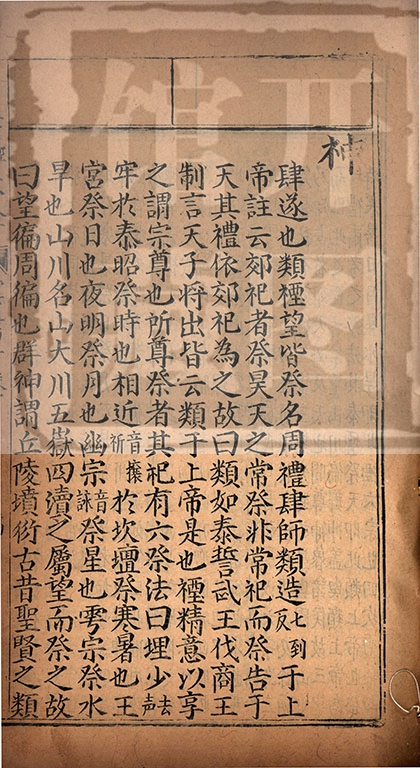 肆遂也類禋望皆祭名周禮肆師類造七到反于上
帝註云郊祀者祭昊天之常祭非常祀而祭告于
天其禮依郊祀為之故曰類如泰誓武王伐商王
制言天子將出皆云類于上帝是也禋精意以享
之謂宗尊也所尊祭者其祀有六祭法曰埋少去声
牢於泰昭祭時也相近音攘祈於坎壇祭寒暑也王
宮祭日也夜明祭月也幽宗音詠祭星也雩宗祭水
旱也山川名山大川五嶽四瀆之屬望而祭之故
曰望徧周徧也群神謂丘陵墳衍古昔聖賢之類